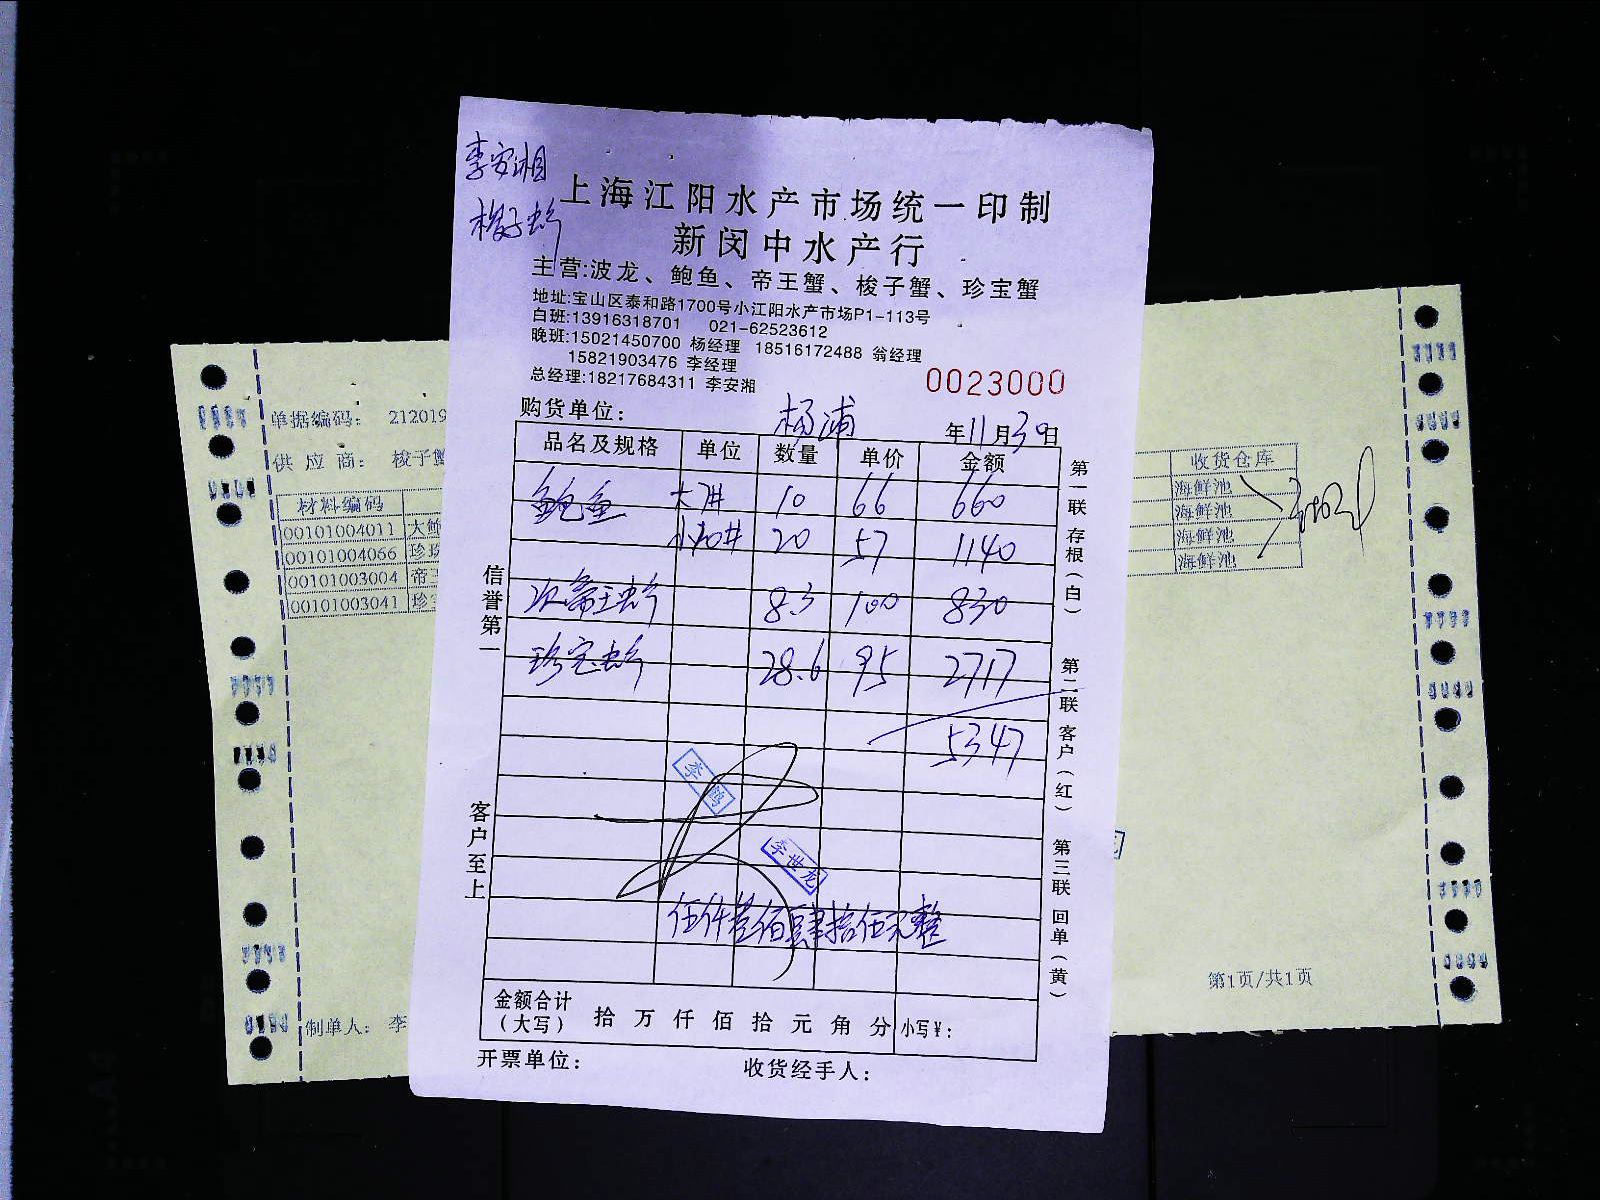 李安湘
梭子蟹
上海江阳水产市场统一印制
新闵中水产行
主营:波龙、鲍鱼、帝王蟹、梭子蟹、珍宝蟹
地址:宝山区泰和路1700号小江阳水产市场P1-113号
白班:13916318701 021-62523612
晚班:15021450700 杨经理 18516172488 翁经理
15821903476 李经理
总经理:18217684311 李安湘
0023000
购货单位: 杨浦 年11月30日
品名及规格 单位 数量 单价 金额
鲍鱼 大 10 66 660
小 20 57 1140
次帝王蟹 8.3 100 830
珍宝蟹 28.6 95 2717
5347
李鹏
李世龙
伍仟叁佰肆拾伍元整
金额合计(大写) 拾 万 仟 佰 拾 元 角 分 小写¥:
开票单位: 收货经手人:
信誉第一
客户至上
第一联 存根(白)
第二联 客户(红)
第三联 回单(黄)
单据编码: 212019
供应商: 梭子蟹
材料编码
00101004011 大鲍
00101004066 珍珠
00101003004 帝王
00101003041 珍宝
制单人: 李
收货仓库
海鲜池
海鲜池
海鲜池
海鲜池
龙
第1页/共1页